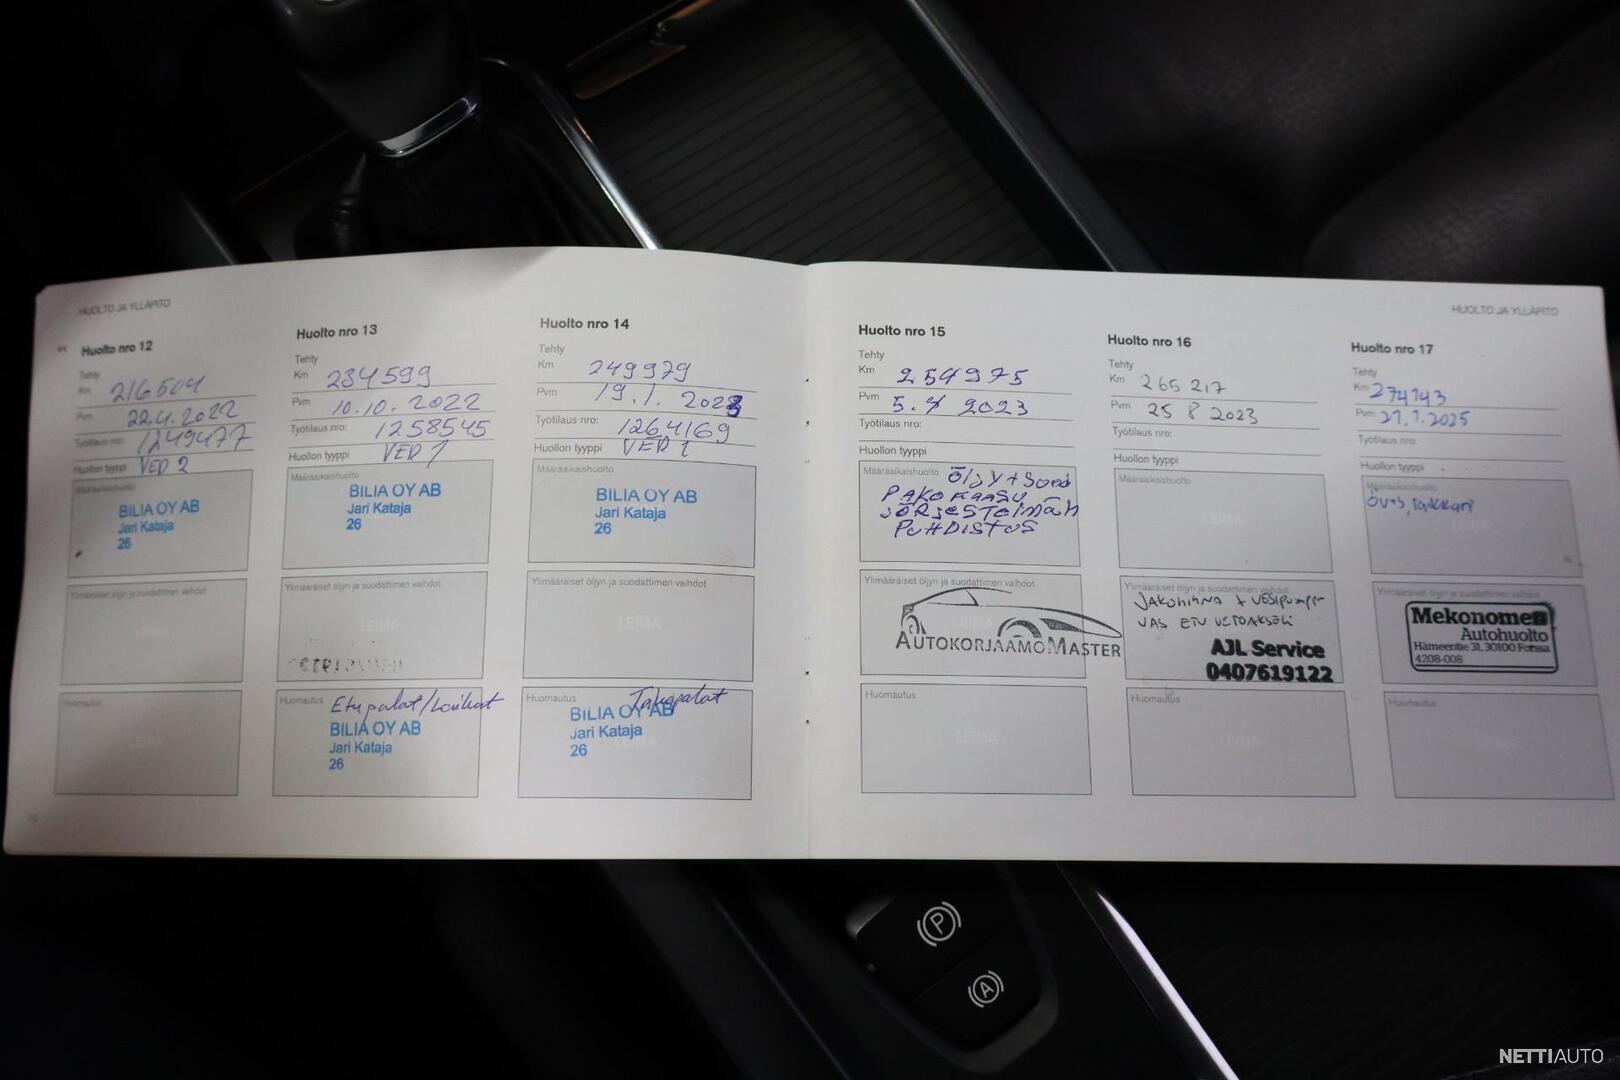 HUOLTO JA YLLÄPITO
Huolto nro 12
Tehty
Km 216504
Pvm 22.4.2022
Työtilaus nro: 1249477
Huollon tyyppi VER 2
Määräaikaishuolto
BILIA OY AB
Jari Kataja
26
Ylimääräiset öljyn ja suodattimen vaihdot
LEIMA
Huomautus
LEIMA
Huolto nro 13
Tehty
Km 234599
Pvm 10.10.2022
Työtilaus nro: 1258545
Huollon tyyppi VER 1
Määräaikaishuolto
BILIA OY AB
Jari Kataja
26
Ylimääräiset öljyn ja suodattimen vaihdot
LEIMA
Huomautus Etupalat/
BILIA OY AB
Jari Kataja
26
Huolto nro 14
Tehty
Km 249979
Pvm 19.1.2023
Työtilaus nro: 1264169
Huollon tyyppi VER
Määräaikaishuolto
BILIA OY AB
Jari Kataja
26
Ylimääräiset öljyn ja suodattimen vaihdot
LEIMA
Huomautus Takapalat
BILIA OY AB
Jari Kataja
26
LEIMA
HUOLTO JA YLLÄPITO
Huolto nro 15
Tehty
Km 254975
Pvm 5. 2023
Työtilaus nro:
Huollon tyyppi
Määräaikaishuolto ÖljY + Suod
PAKOKAASU
JÄRJESTELMÄN
PUHDISTUS
Ylimääräiset öljyn ja suodattimen vaihdot
LEIMA
AUTOKORJAAMOMASTER
Huomautus
LEIMA
Huolto nro 16
Tehty
Km 265 217
Pvm 25 8 2023
Työtilaus nro:
Huollon tyyppi
Määräaikaishuolto
LEIMA
Ylimääräiset öljyn ja suodattimen vaihdot
JAKOHIHNA + VESIPUMPPU
VAS ETU VETOAKSELI
AJL Service
0407619122
Huomautus
LEIMA
Huolto nro 17
Tehty
Km 274743
Pvm 2025
Työtilaus nro:
Huollon tyyppi
Määräaikaishuolto
LEIMA
Ylimääräiset öljyn ja suodattimen vaihdot
Mekonomen
Autohuolto
Hämeentie 31, 30100 Forssa
4208-008
Huomautus
LEIMA
P
A
NETTIAUTO